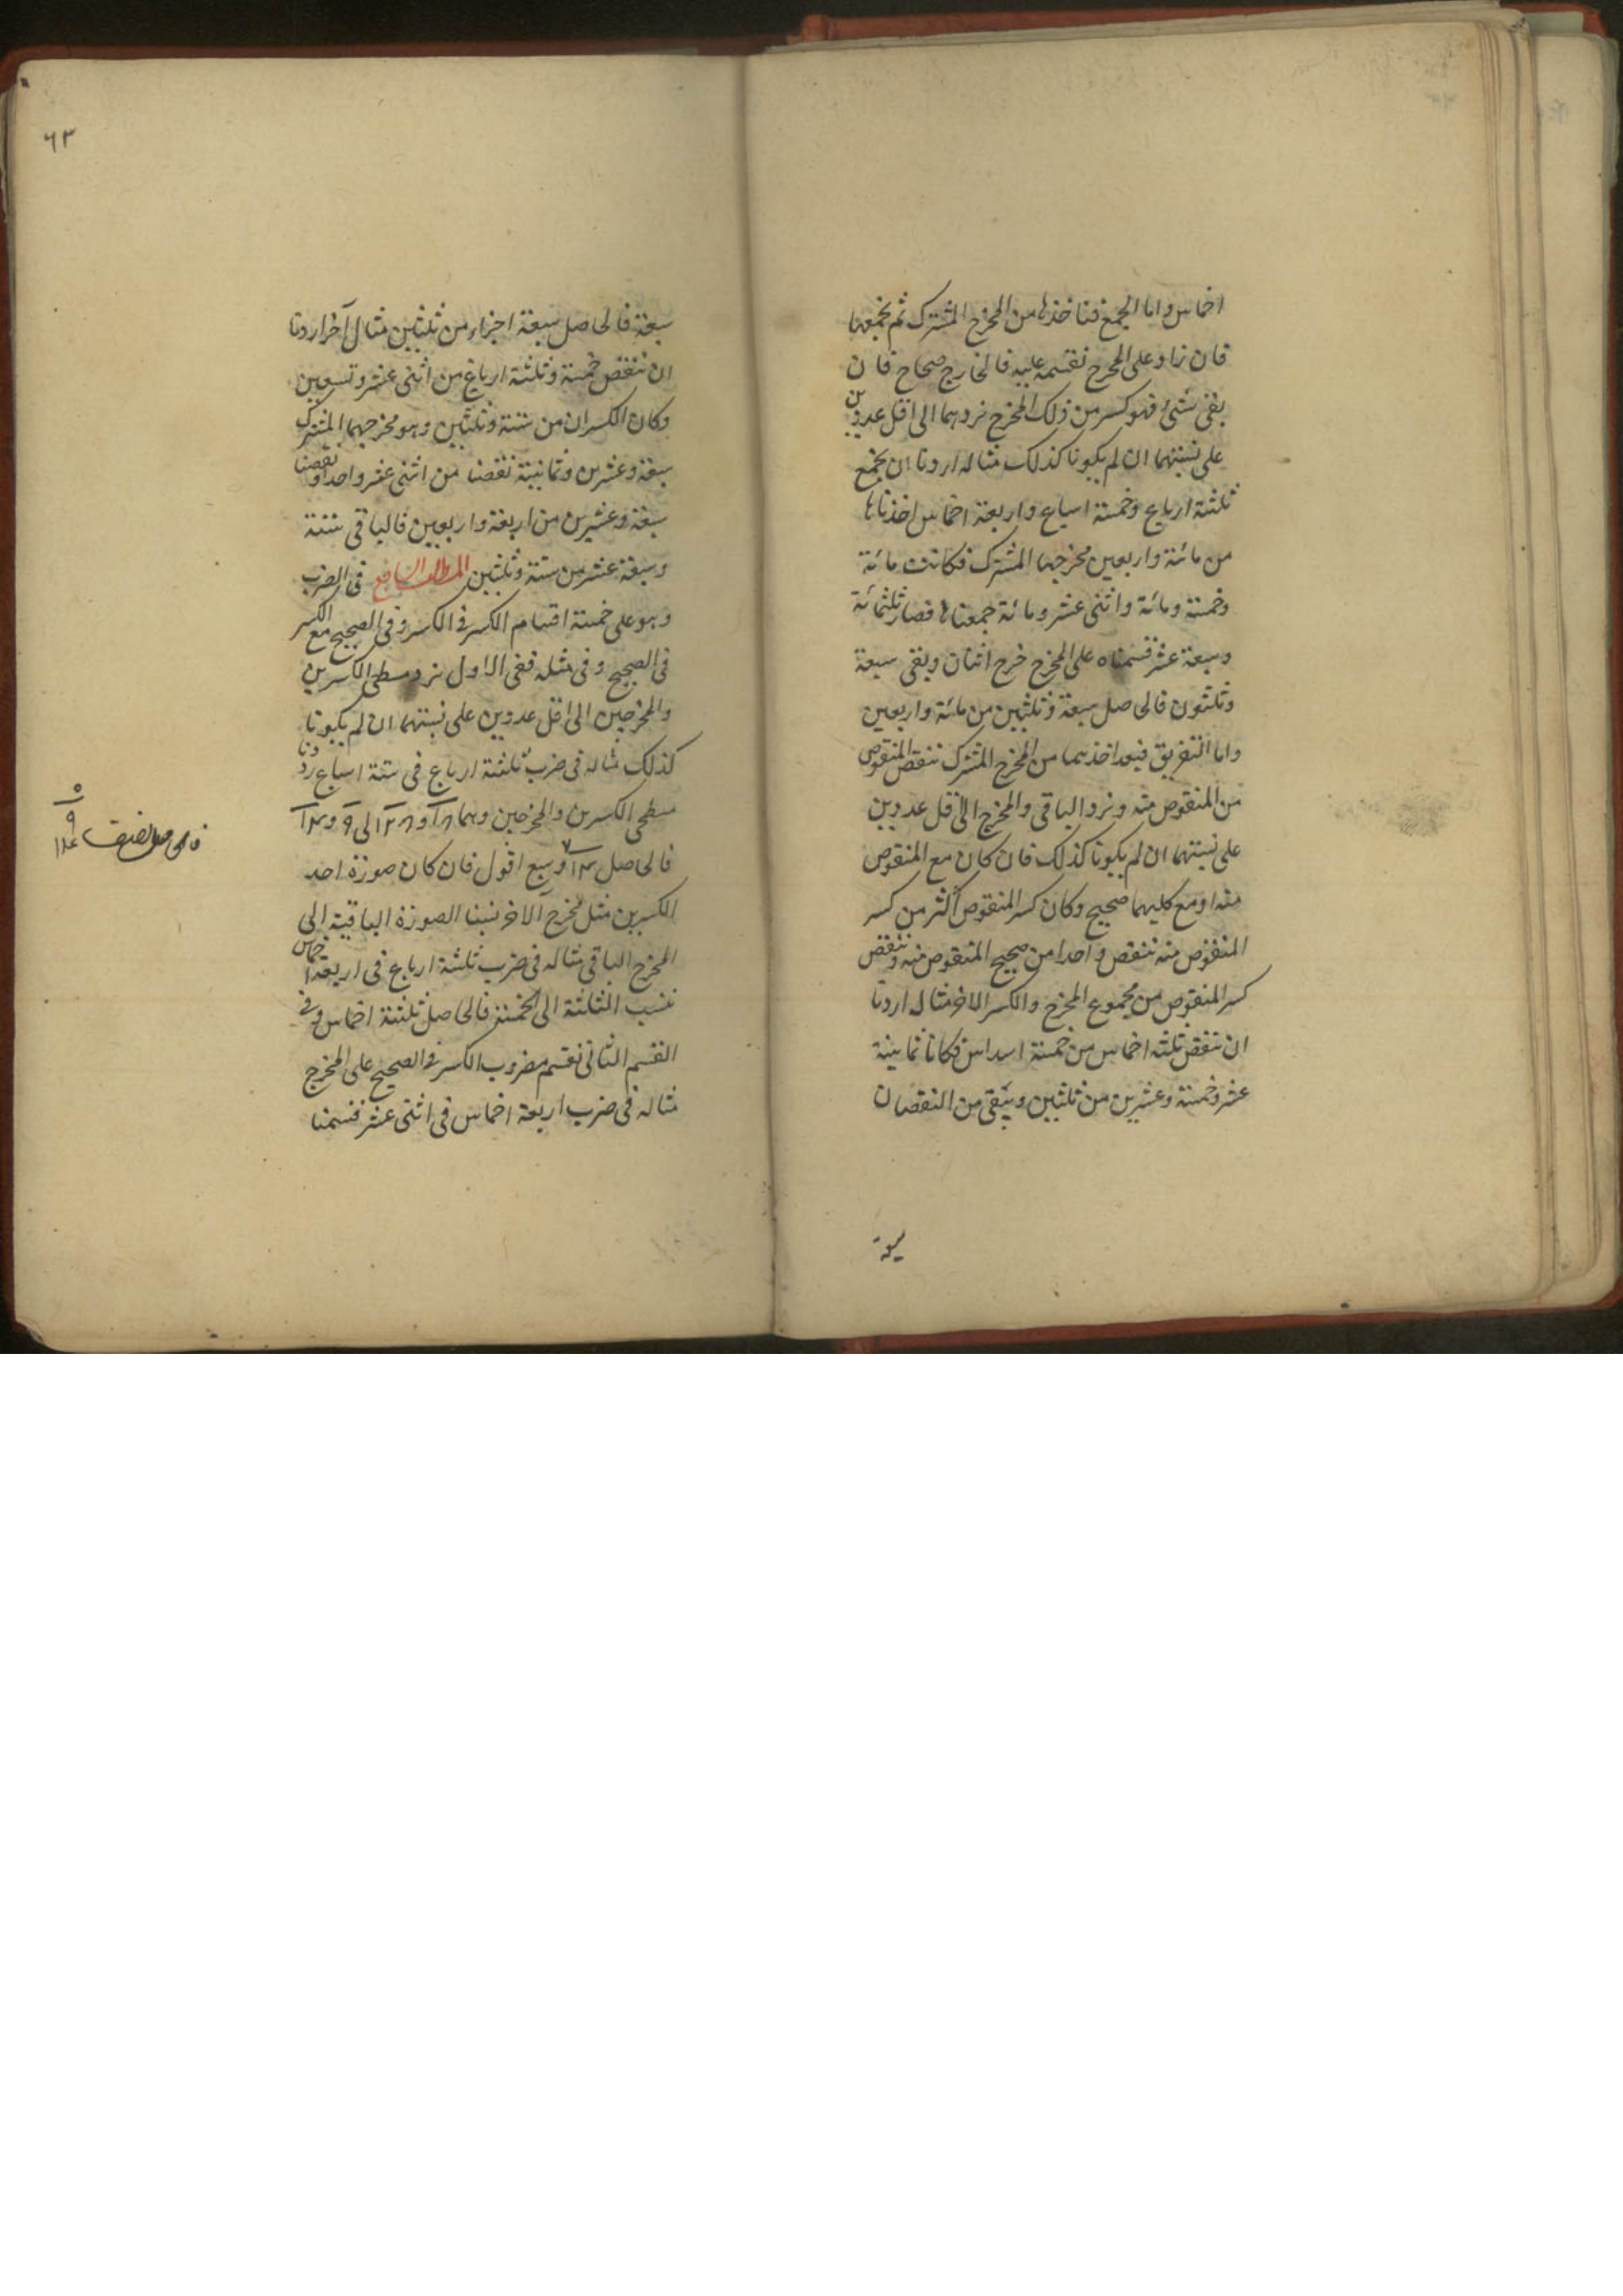 اخماس واما الجمع فناخذها من المخرج المشترك ثم نجمعها
فان زاد على المخرج نقسمه عليه فالخارج صحاح فان
بقى شئ فهو كسر من ذلك المخرج نردهما الى اقل عددين
على نسبتهما ان لم يكونا كذلك مثاله اردنا ان نجمع
ثلثة ارباع وخمسة اسباع واربعة اخماس اخذناها
من مائة واربعين مخرجها المشترك فكانت مائة
وخمسة ومائة واثنى عشر ومائة جمعناها فصار ثلثمائة
وسبعة عشر قسمناه على المخرج خرج اثنان وبقى سبعة
وثلثون فالحاصل سبعة وثلثين من مائة واربعين
واما التفريق فبعد اخذهما من المخرج المشترك ننقص المنقوص
من المنقوص منه ونرد الباقى والمخرج الى اقل عددين
على نسبتهما ان لم يكونا كذلك فان كان مع المنقوص
منه او مع كليهما صحيح وكان كسر المنقوص اكثر من كسر
المنقوص منه ننقص واحدا من صحيح المنقوص منه وننقص
كسر المنقوص من مجموع المخرج والكسر الاخر مثال اردنا
ان ننقص ثلثه اخماس من خمسة اسداس فكانا ثمانية
عشر وخمسة وعشرين من ثلثين وبقى من النقصان
سبعة
٦٣
سبعة فالحاصل سبعة اجزاء من ثلثين مثال آخر اردنا
ان ننقص خمسة وثلثة ارباع من اثنى عشر وتسعين
وكان الكسران من ستة وثلثين وهو مخرجهما المشترك
سبعة وعشرين وثمانية نقصنا من اثنى عشر واحدا ونقصنا
سبعة وعشرين من اربعة واربعين فالباقى ستة
وسبعة عشر من ستة وثلثين المطلب السابع فى الضرب
وهو على خمسة اقسام الكسر فى الكسر وفى الصحيح مع الكسر
فى الصحيح وفى مثله ففى الاول نرد مسطحى الكسرين
والمخرجين الى اقل عددين على نسبتهما ان لم يكونا
كذلك مثاله فى ضرب ثلثة ارباع فى ستة اسباع رددنا
مسطحى الكسرين والمخرجين وهما ١٨ و ٢٨ الى ٩ و ١٤
فالحاصل وسبع اقول فان كان صورة احد
الكسرين مثل مخرج الآخر نسبنا الصورة الباقية الى
المخرج الباقى مثاله فى ضرب ثلثة ارباع فى اربعة اخماس
ننسب الثلثة الى الخمسة فالحاصل ثلثة اخماس وفى
القسم الثانى نقسم مضروب الكسر فى الصحيح على المخرج
مثاله فى ضرب اربعة اخماس فى اثنى عشر قسمنا